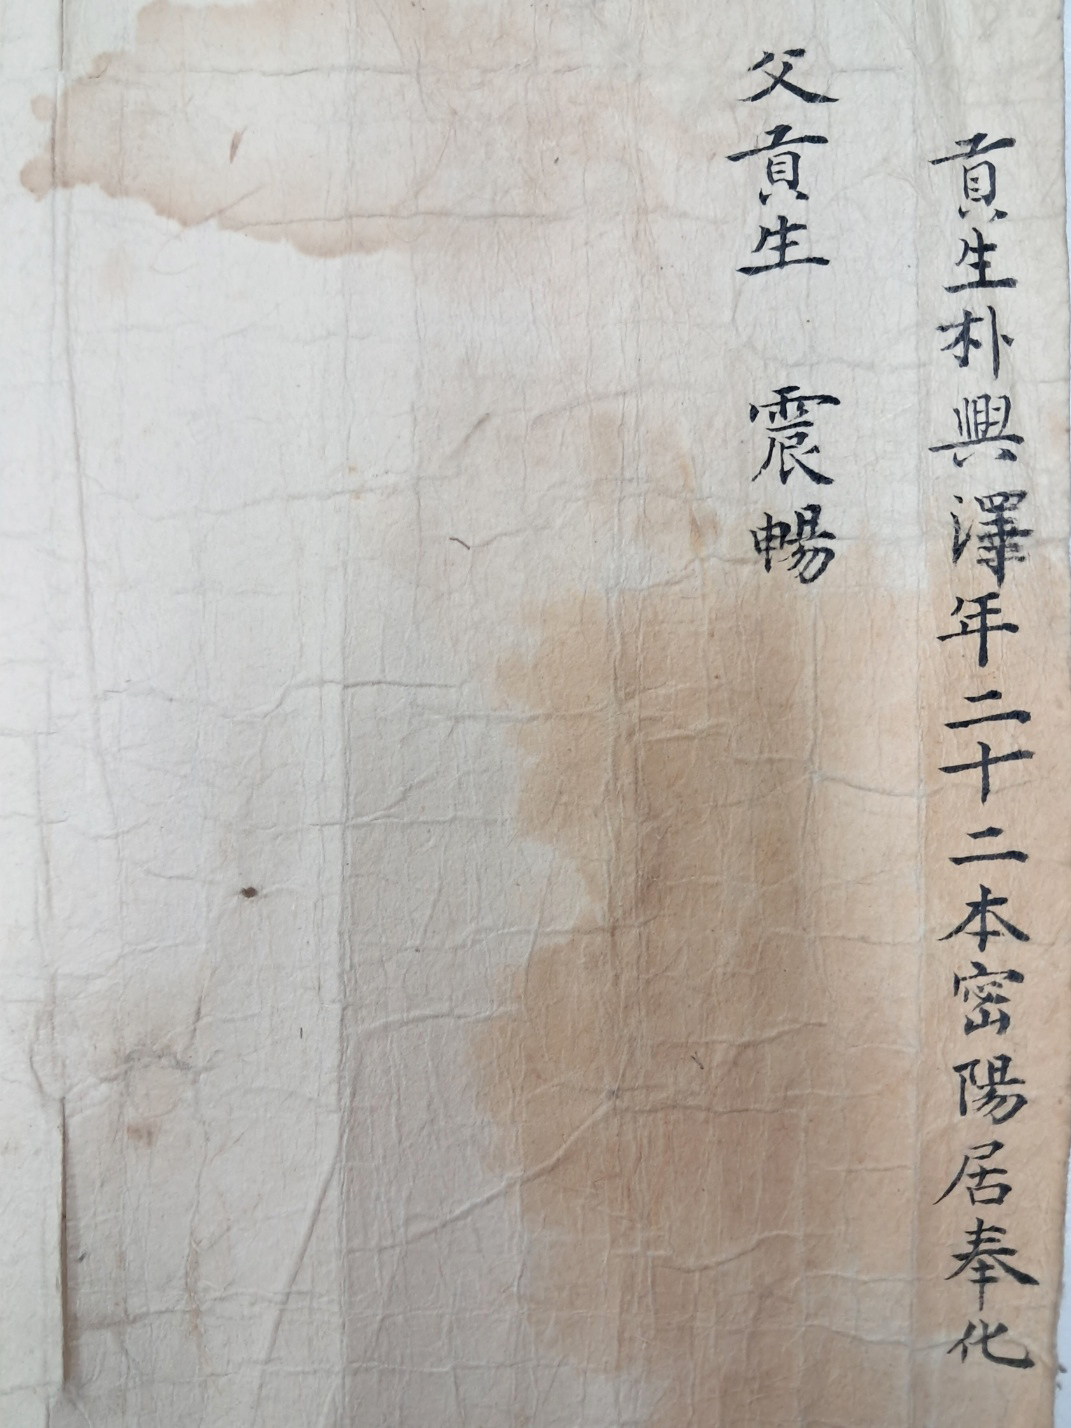 貢生朴興澤年二十二本密陽居奉化
父貢生 震暢